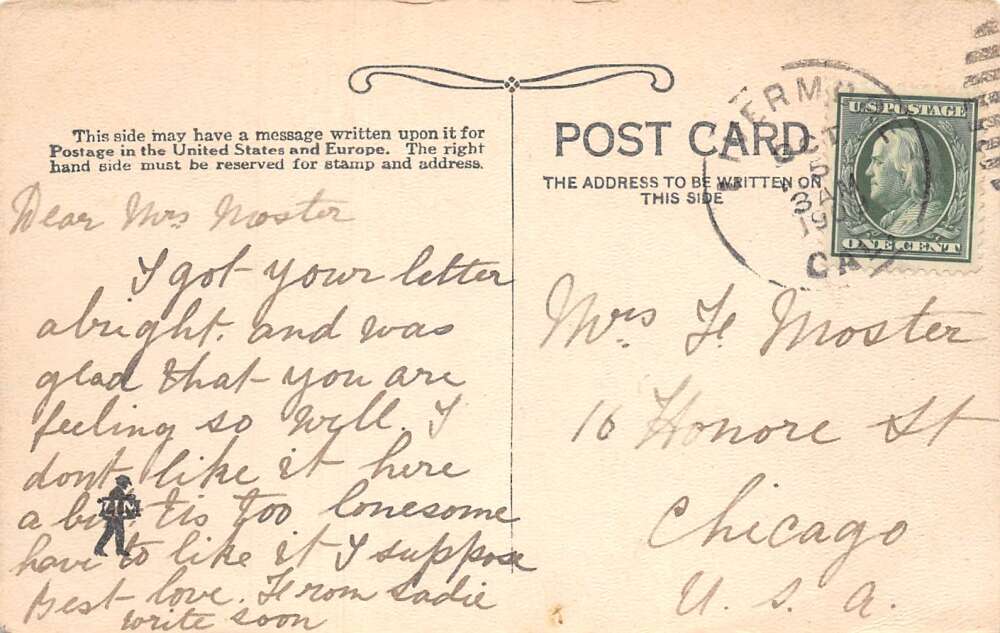 This side may have a message written upon it for
Postage in the United States and Europe. The right
hand side must be reserved for stamp and address.
Dear Mrs Moster
I got your letter
alright. and was
glad that you are
feeling so well. I
dont like it here
a bit tis too lonesome
have to like it I suppose
Best love. From Sadie
write soon
ZIM
POST CARD
THE ADDRESS TO BE WRITTEN ON
THIS SIDE
OCT
5
3 AM
CAL
U.S. POSTAGE
ONE CENT
Mrs. F. Moster
16 Honore St
Chicago
U. S. A.